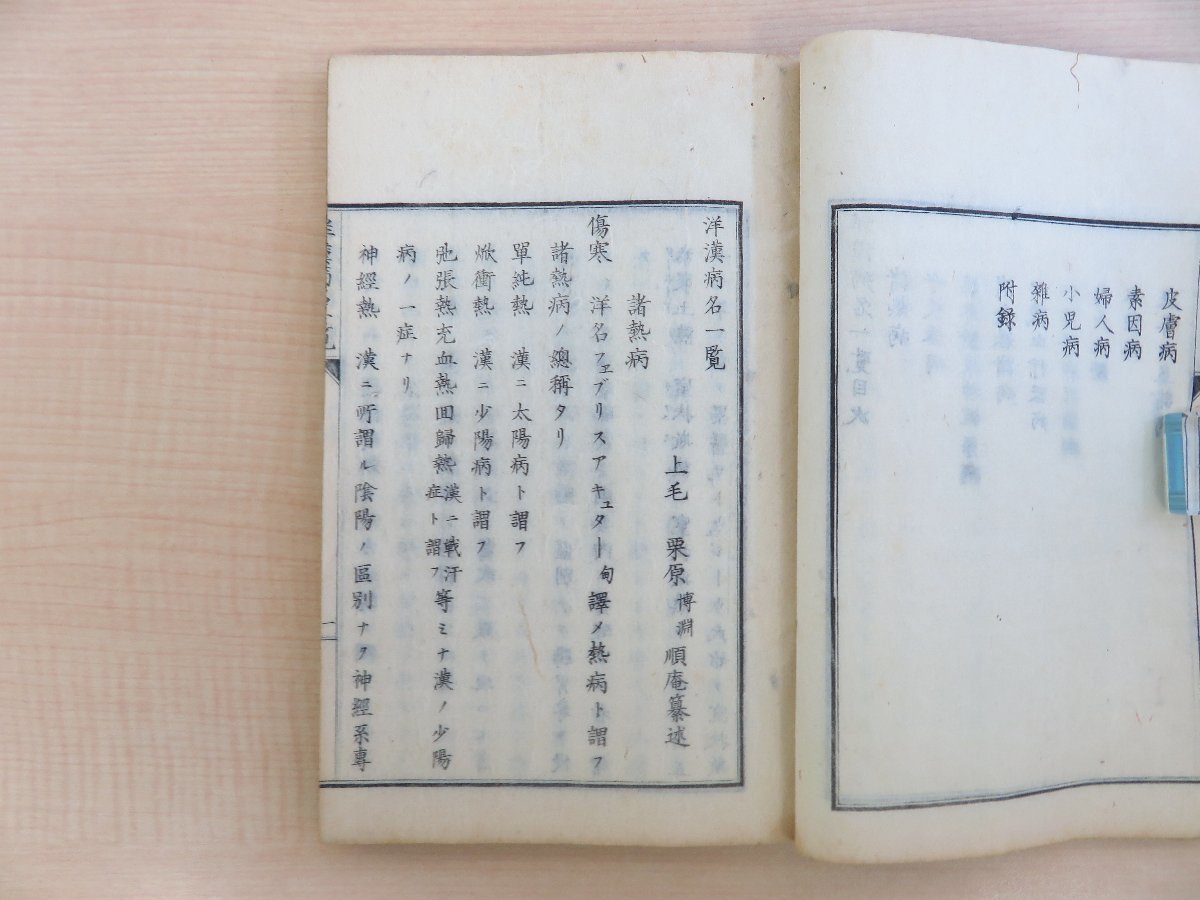 皮膚病
素因病
婦人病
小児病
雜病
附録
洋漢病名一覧
上毛 栗原博淵順庵纂述
諸熱病
傷寒 洋名フェブリスアキュタート 旬 譯メ熱病ト謂フ
諸熱病ノ總稱タリ
單純熱 漢ニ太陽病ト謂フ
焮衝熱 漢ニ少陽病ト謂フ
弛張熱充血熱回歸熱漢ニ戰汗症ト謂フ等ミナ漢ノ少陽
病ノ一症ナリ
神經熱 漢ニ所謂ル陰陽ノ區別ナヲ神經系專